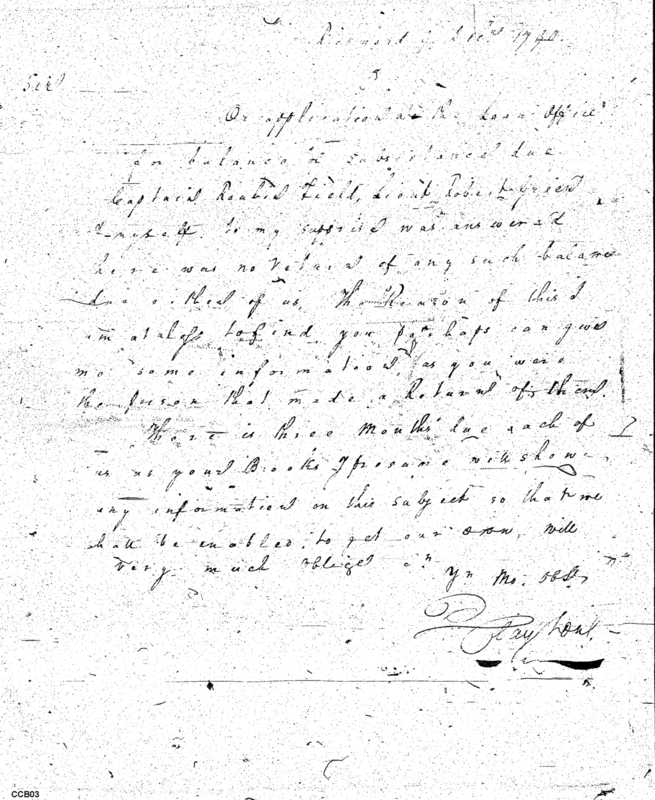 Richmond Decr 1790
Sir
On application at the Loan Office
for balance of subsistance due
Captain Reubin Field, Lieut Robert Green
& myself, to my supprise was answered
there was no return of any such balance
due either of us, The Reason of this I
am at a loss to find you perhaps can give
me some information, as you were
the person that made a Return of them.
There is three Months due each of
us as your Books I presume will show,
any information on this subject so that we
shall be enabled to get our own, will
very much oblige
Yr Mo. Obt
P Clayton
CCB03